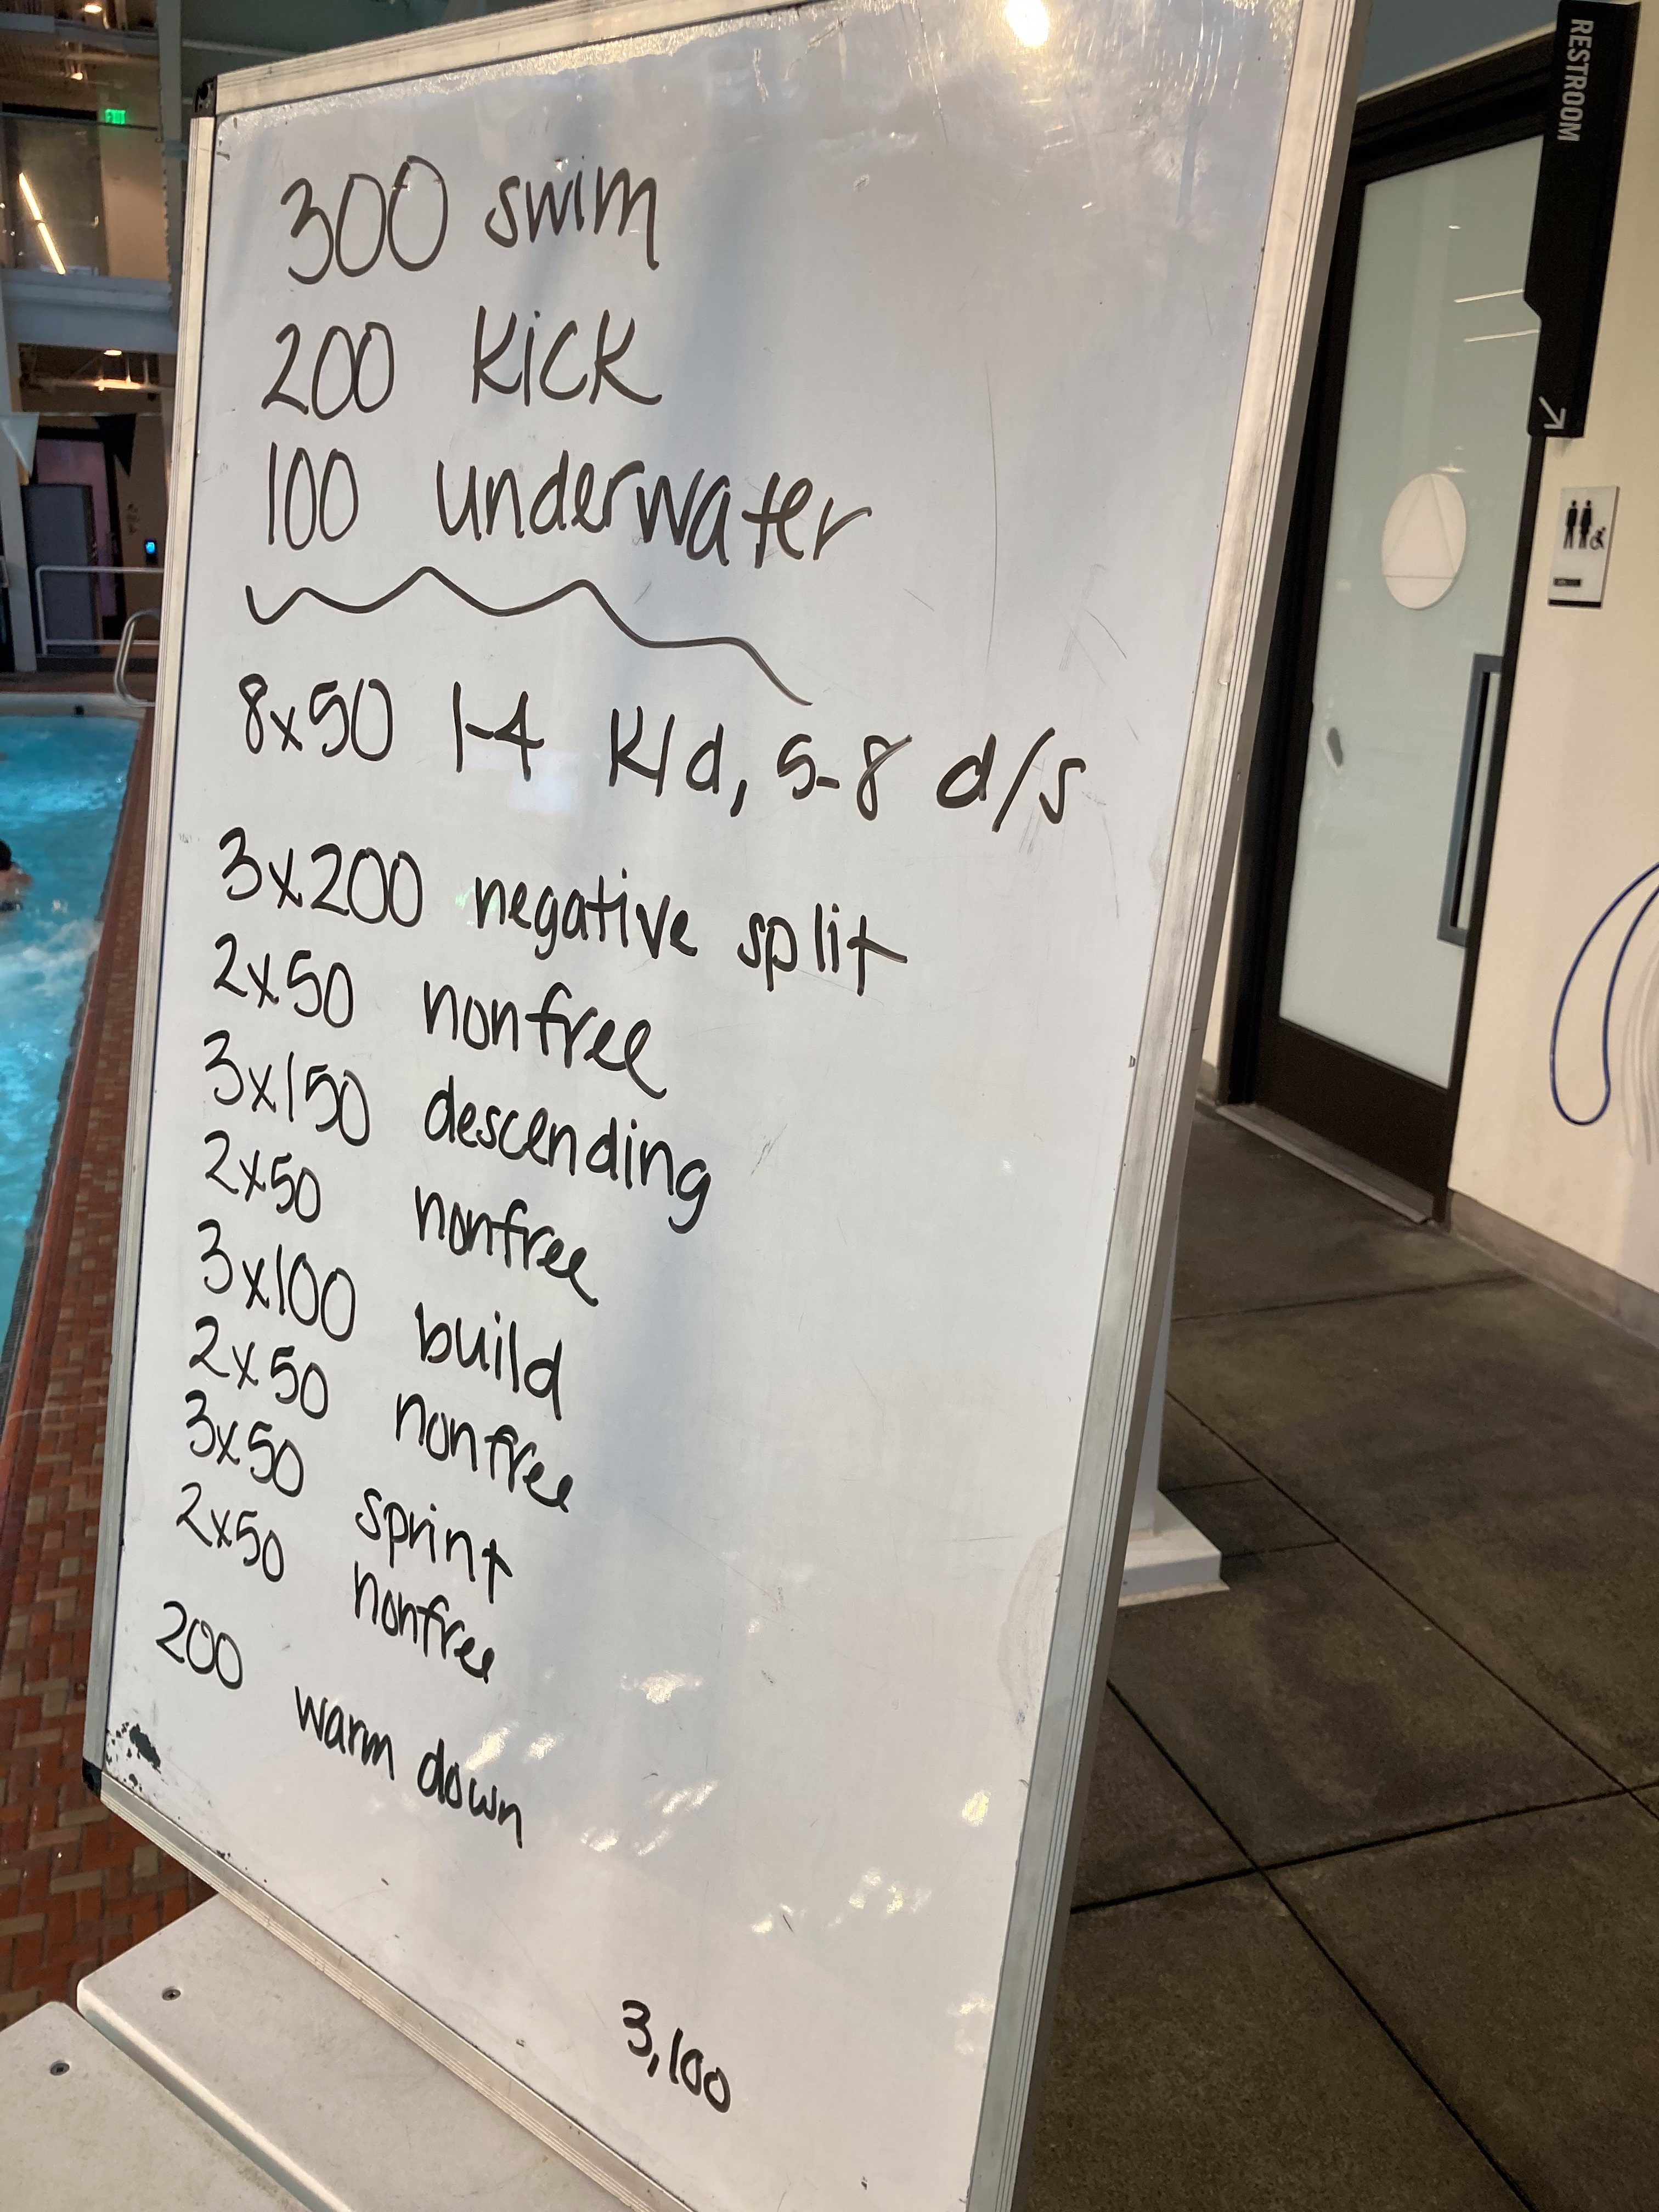 300 swim
200 kick
100 underwater
8x50 1-4 K/d, 5-8 d/s
3x200 negative split
2x50 nonfree
3x150 descending
2x50 nonfree
3x100 build
2x50 nonfree
3x50 sprint
2x50 nonfree
200 warm down
3,100
RESTROOM
EXIT